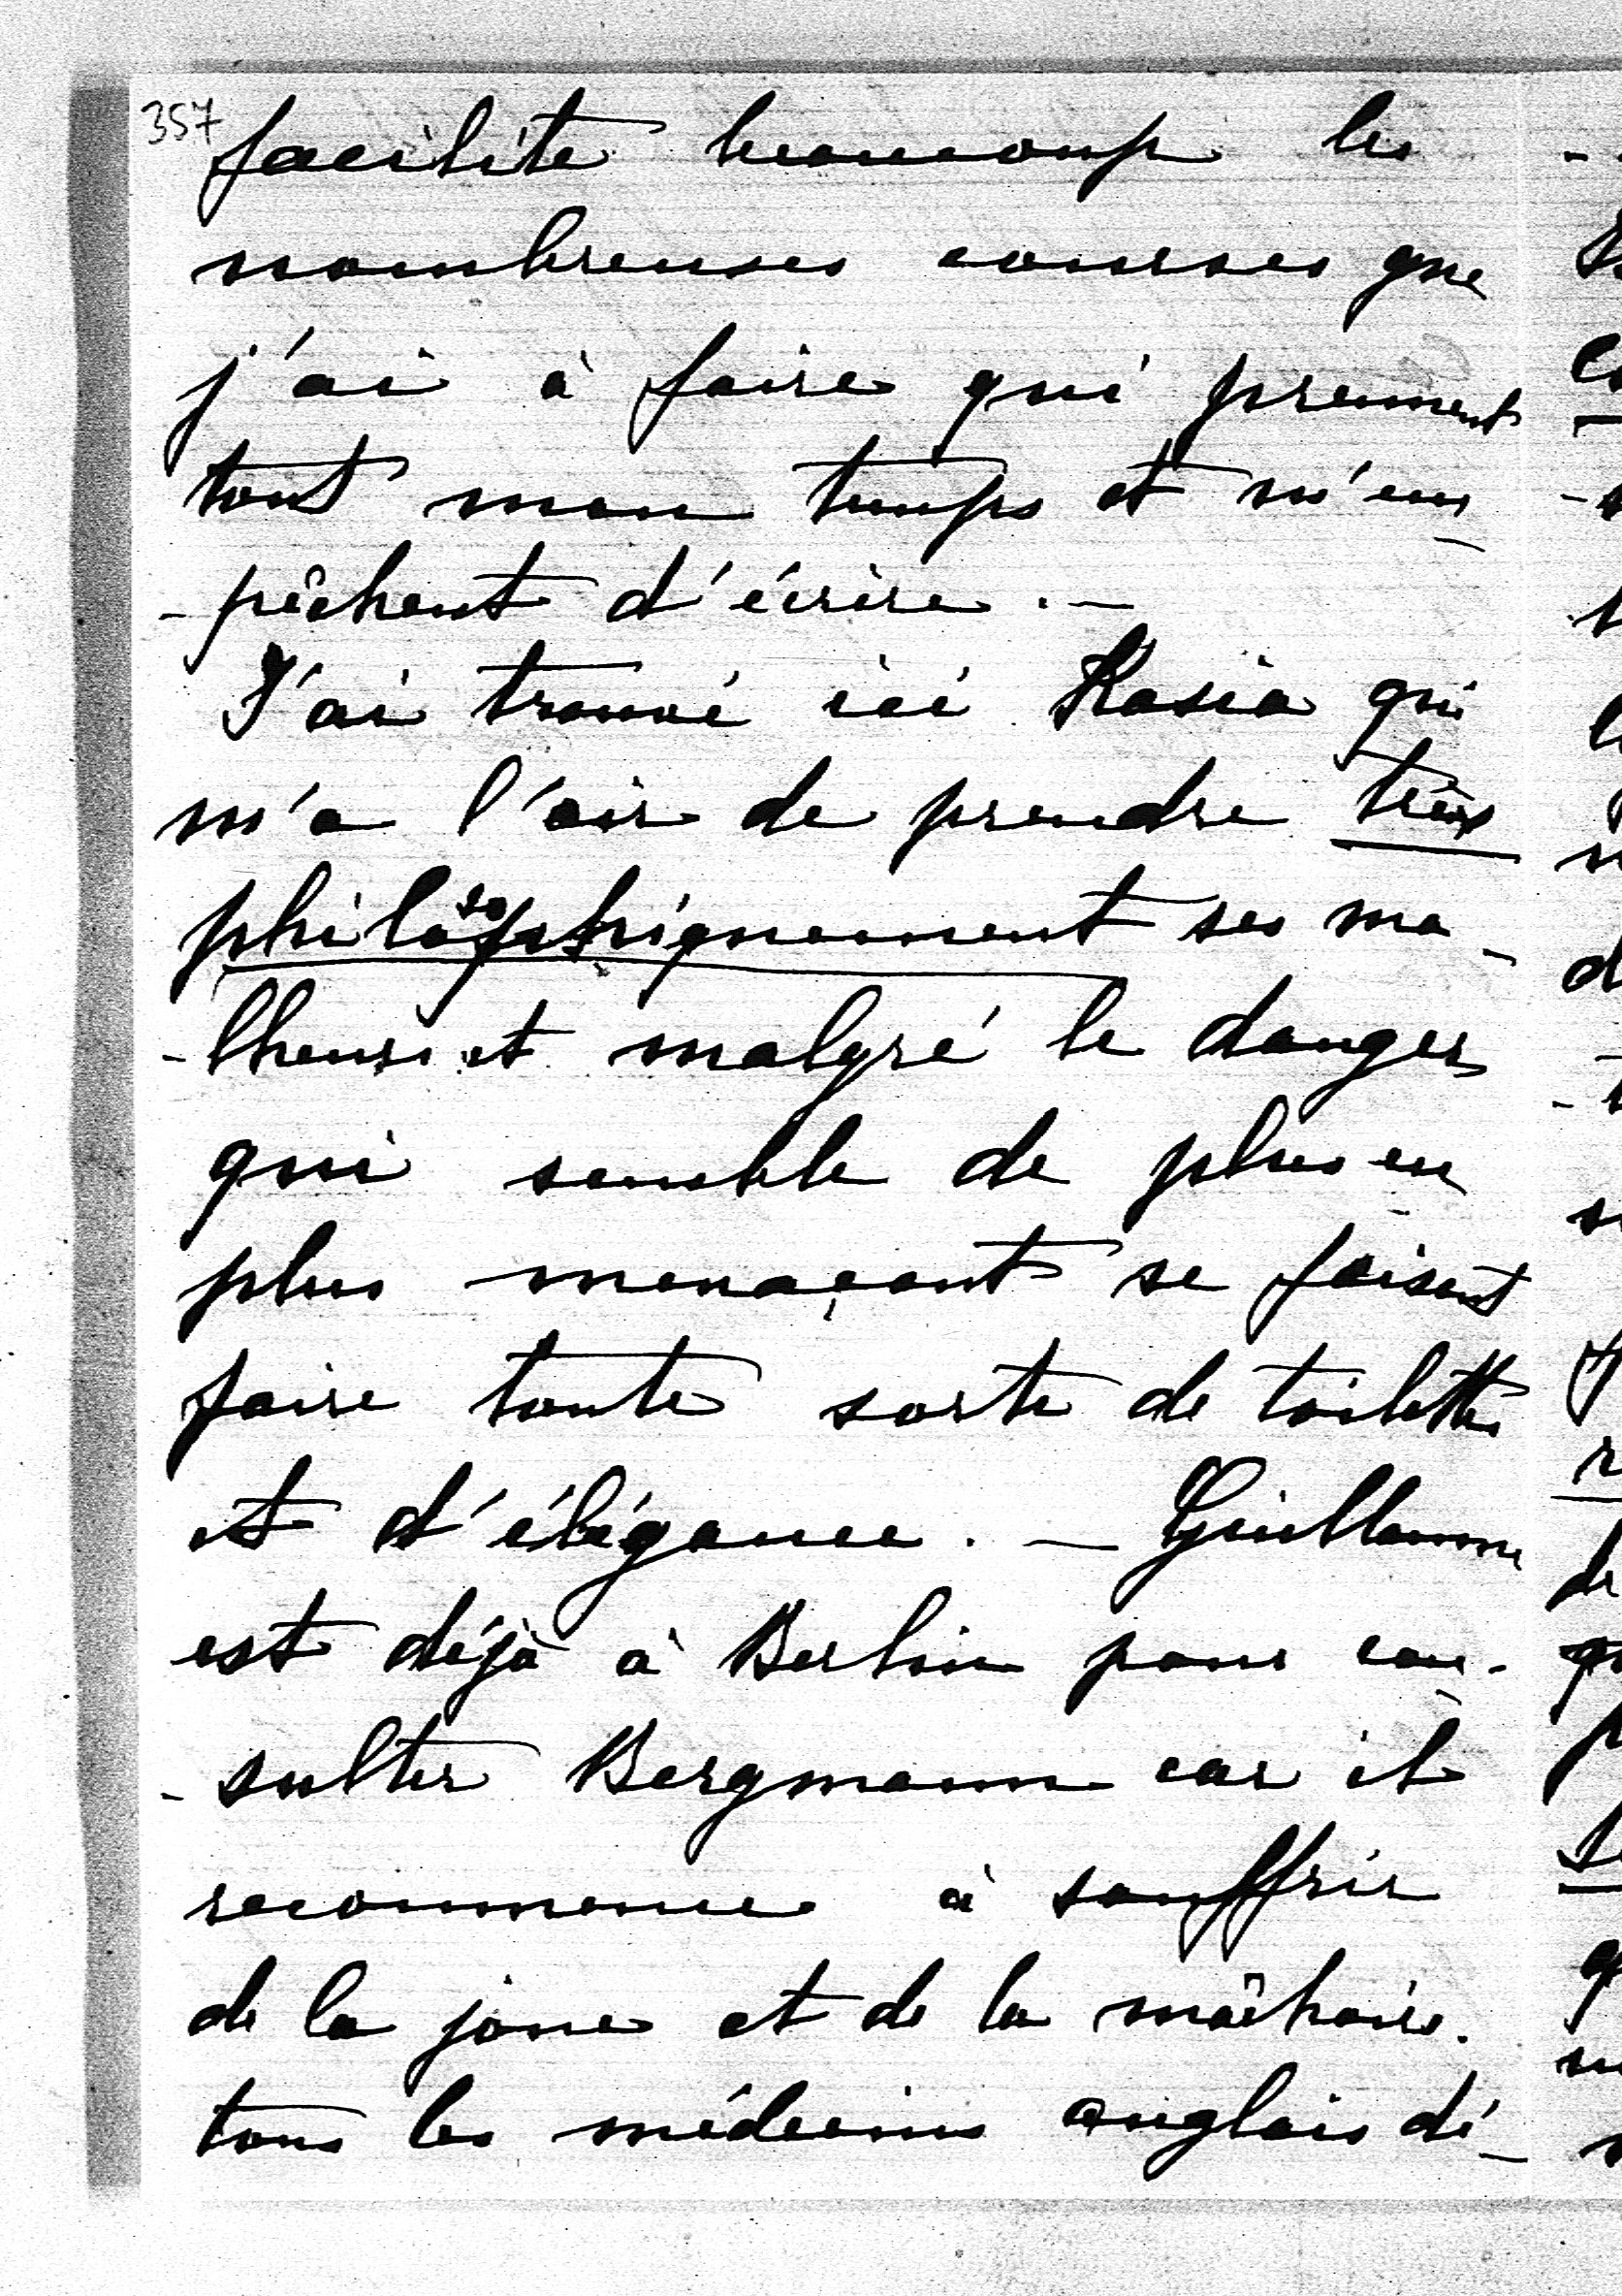 357
facilite beaucoup les
nombreuses courses que
j'ai à faire qui prennent
tout mon temps et m'em
-pêchent d'écrire. —
J'ai trouvé ici Kasia qui
m'a l'air de prendre très
philosophiquement ses ma-
-lheurs et malgré le danger
qui semble de plus en
plus menaçant se faisant
faire toute sorte de toilettes
et d'élégance. — Guillaume
est déjà à Berlin pour con-
-sulter Bergmann car il
recommence à souffrir
de la joue et de la mâchoire.
tous les médecins anglais dé-